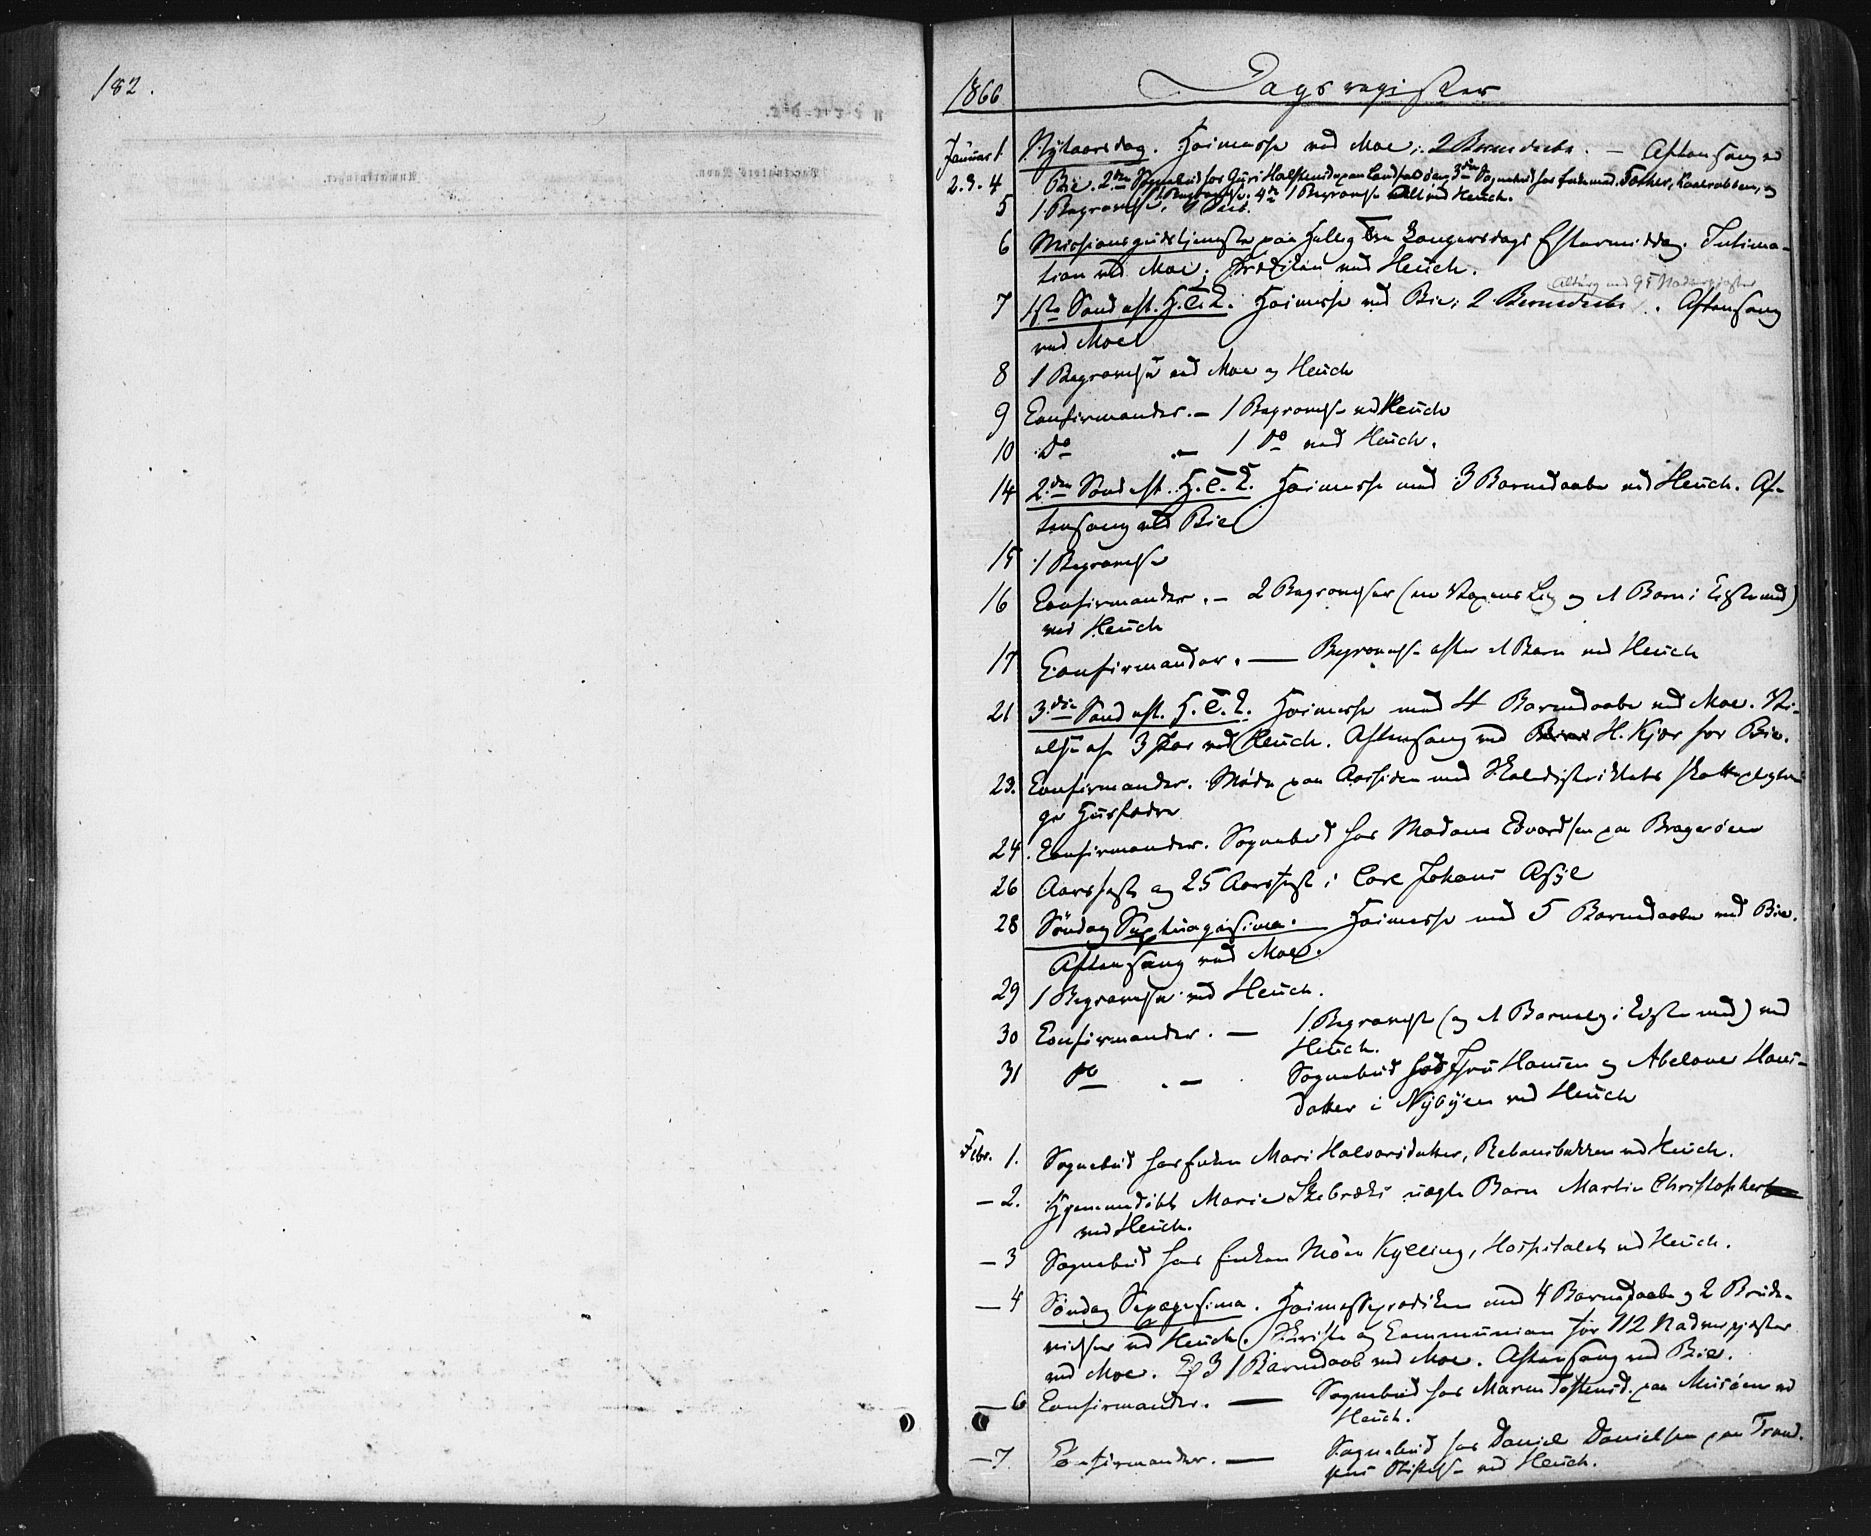 182.
1866 Dagsregister
Januar 1. Nytaarsdag. Høimesse ved Moe; 2 Barnedaabe. — Aftensang ved
2. 3. 4 Bie. 2den Sognebud hos Guri Halstensd. paa Landfaldøen, 3die Sognebud hos Enkemad. Tother, og
1 Begravelse. 4de 1 Begravelse Alt ved Heuch.
5 1 Begravelse, 1 Daab.
6 Missionsgudstjeneste paa Hellig Tre Kongersdags Eftermiddag. Intima-
tion ved Moe; Prædiken ved Heuch.
Altarg. med 95 Nadvergjæster
7 1ste Sønd. eft. H. T. K. Høimesse ved Bie; 2 Barnedaabe. Aftensang
ved Moe
8 1 Begravelse ved Moe og Heuch
9 Confirmander. — 1 Begravelse ved Heuch
10 Do — 1 Do ved Heuch.
14 2den Sønd. eft. H. T. K. Høimesse med 3 Barnedaabe ved Heuch. Af-
tensang ved Bie
15 1 Begravelse
16 Confirmander. — 2 Begravelser (en Voxens Lig og et Barn i Kiste med)
ved Heuch
17 Confirmander. — Begravelse efter et Barn ved Heuch
21 3die Sønd. eft. H. T. K. Høimesse med 4 Barnedaabe ved Moe. Vi-
else af 3 Par ved Heuch. Aftensang ved H. Kjær for Bie.
23. Confirmander. Møde paa Aassiden med Skoledistriktets skattepligti-
ge Husfædre
24. Confirmander. Sognebud hos Madame Edvardsen paa Bragerøen
26 Aarsfest og 25 Aarsfest i Carl Johans Asyl
28 Søndag Septuagesima. Høimesse med 5 Barnedaabe ved Bie.
Aftensang ved Moe.
29 1 Begravelse ved Heuch.
30 Confirmander. — 1 Begravelse (og et Barnelig i Kiste med) ved
Heuch.
31 Do — Sognebud hos Fru Hansen og Abelone Hans-
datter i Nybyen ved Heuch
Febr. 1. Sognebud hos Enken Mari Halvorsdatter, Rebansbakken ved Heuch.
— 2. Hjemmedøbt Marie Skebræks uægte Barn Martin Christopher
ved Heuch.
— 3 Sognebud hos Enken Møen Kylling, Hospitalet ved Heuch.
— 4 Søndag Sexagesima. Høimesseprædiken med 4 Barnedaabe og 2 Brude-
vielser ved Heuch. Skrifte og Communion for 112 Nadvergjæster
ved Moe. 1 Barnedaab ved Moe. Aftensang ved Bie.
— 6 Confirmander. — Sognebud hos Maren Tostensd. paa Musøen ved
Heuch.
— 7 Confirmander. — Sognebud hos Daniel Danielsen paa Trond-
sens Stiftelse ved Heuch.